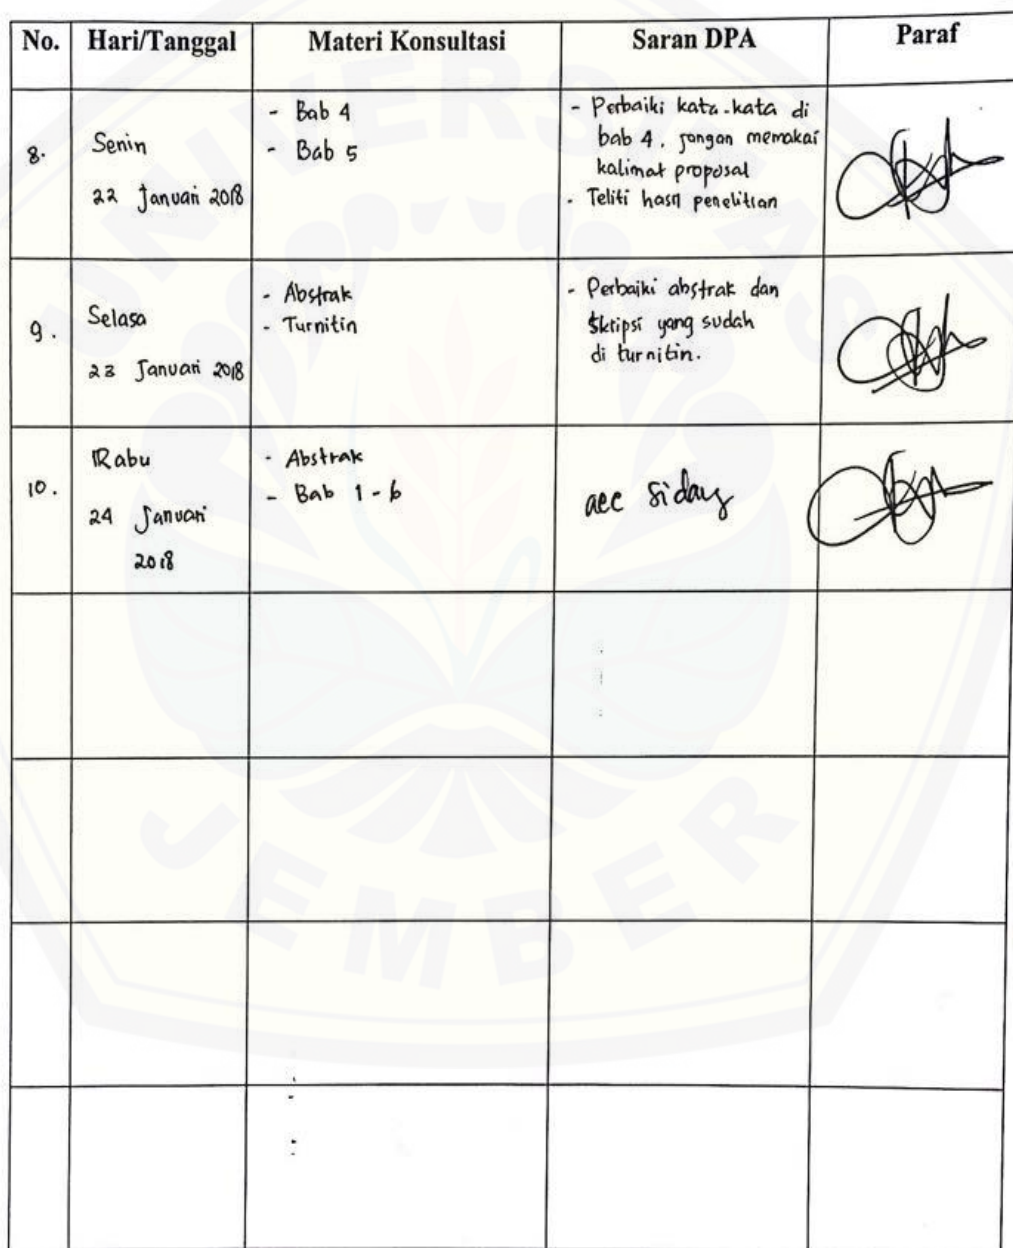 No. Hari/Tanggal Materi Konsultasi Saran DPA Paraf
8. Senin
22 Januari 2018
- Bab 4
- Bab 5
- Perbaiki kata-kata di
bab 4. jangan memakai
kalimat proposal
- Teliti hasil penelitian
9. Selasa
23 Januari 2018
- Abstrak
- Turnitin
- Perbaiki abstrak dan
skripsi yang sudah
di turnitin.
10. Rabu
24 Januari
2018
- Abstrak
- Bab 1 - 6
acc sidang
UNIVERSITAS
JEMBER